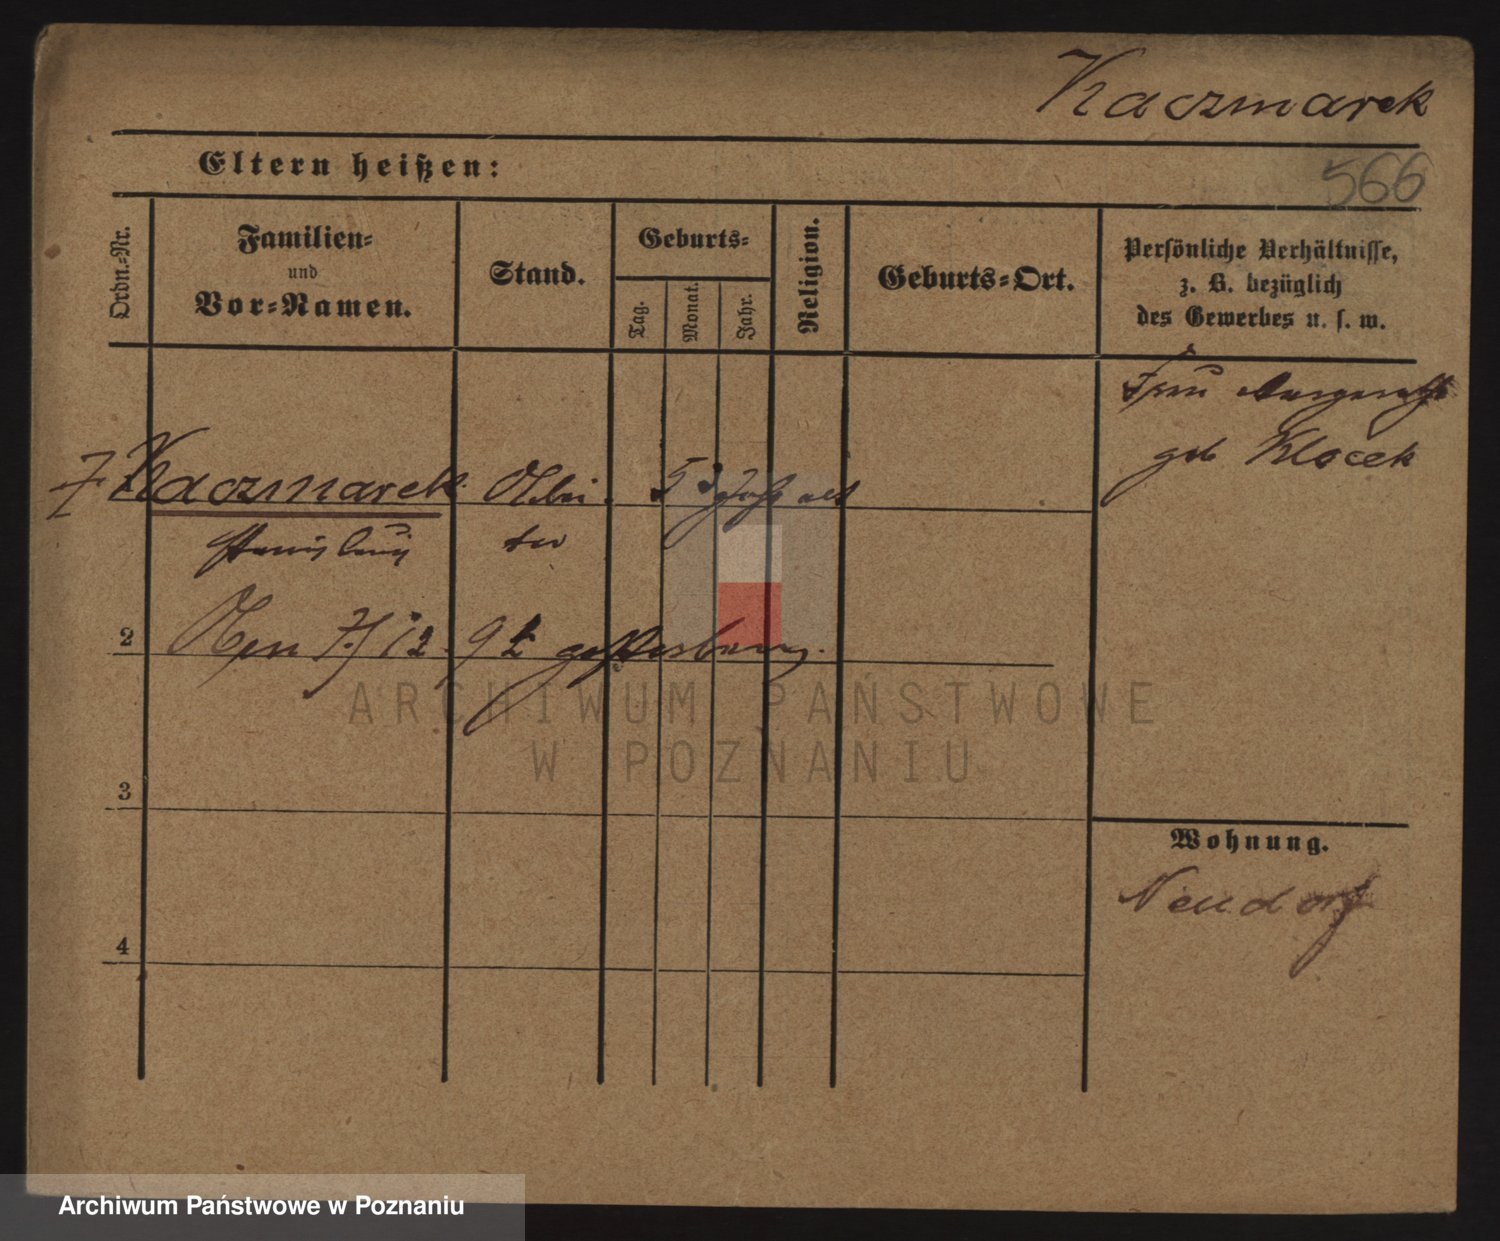 Kaczmarek
Eltern heißen:
566
Ordn.-Nr.
Familien-
und
Vor-Namen.
Stand.
Geburts-
Tag.
Monat.
Jahr.
Religion.
Geburts-Ort.
Persönliche Verhältnisse,
z. B. bezüglich
des Gewerbes u. s. w.
Frau Margareth
geb Klocek
Kaczmarek Arbei 53 Jahr alt
Stanislaus ter
2 7/12 92 gestorben.
ARCHIWUM PAŃSTWOWE
W POZNANIU
3
Wohnung.
Neudorf
4
Archiwum Państwowe w Poznaniu